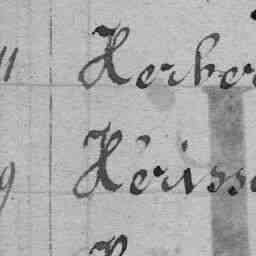 11 Herber
9 Hériss